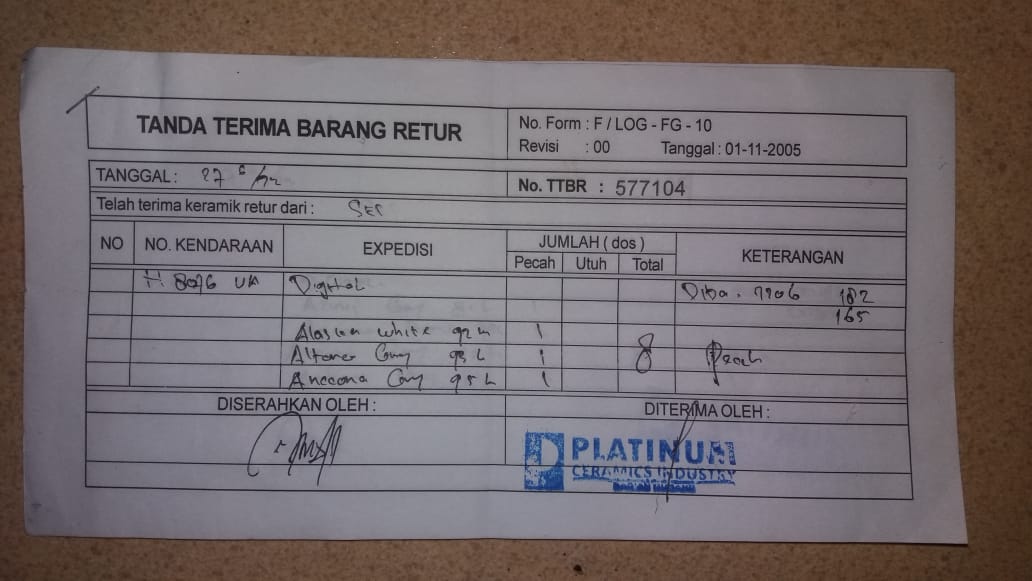 TANDA TERIMA BARANG RETUR
No. Form : F / LOG - FG - 10
Revisi : 00 Tanggal : 01-11-2005
TANGGAL : 27
No. TTBR : 577104
Telah terima keramik retur dari :
NO NO. KENDARAAN EXPEDISI JUMLAH ( dos ) KETERANGAN
Pecah Utuh Total
H 8076 UA Digital 182
165
Alaska white 92 1
Gray 93 L 1 8 Pecah
Ancona Gray 95 L 1
DISERAHKAN OLEH : DITERIMA OLEH :
PLATINUM
CERAMICS INDUSTRY